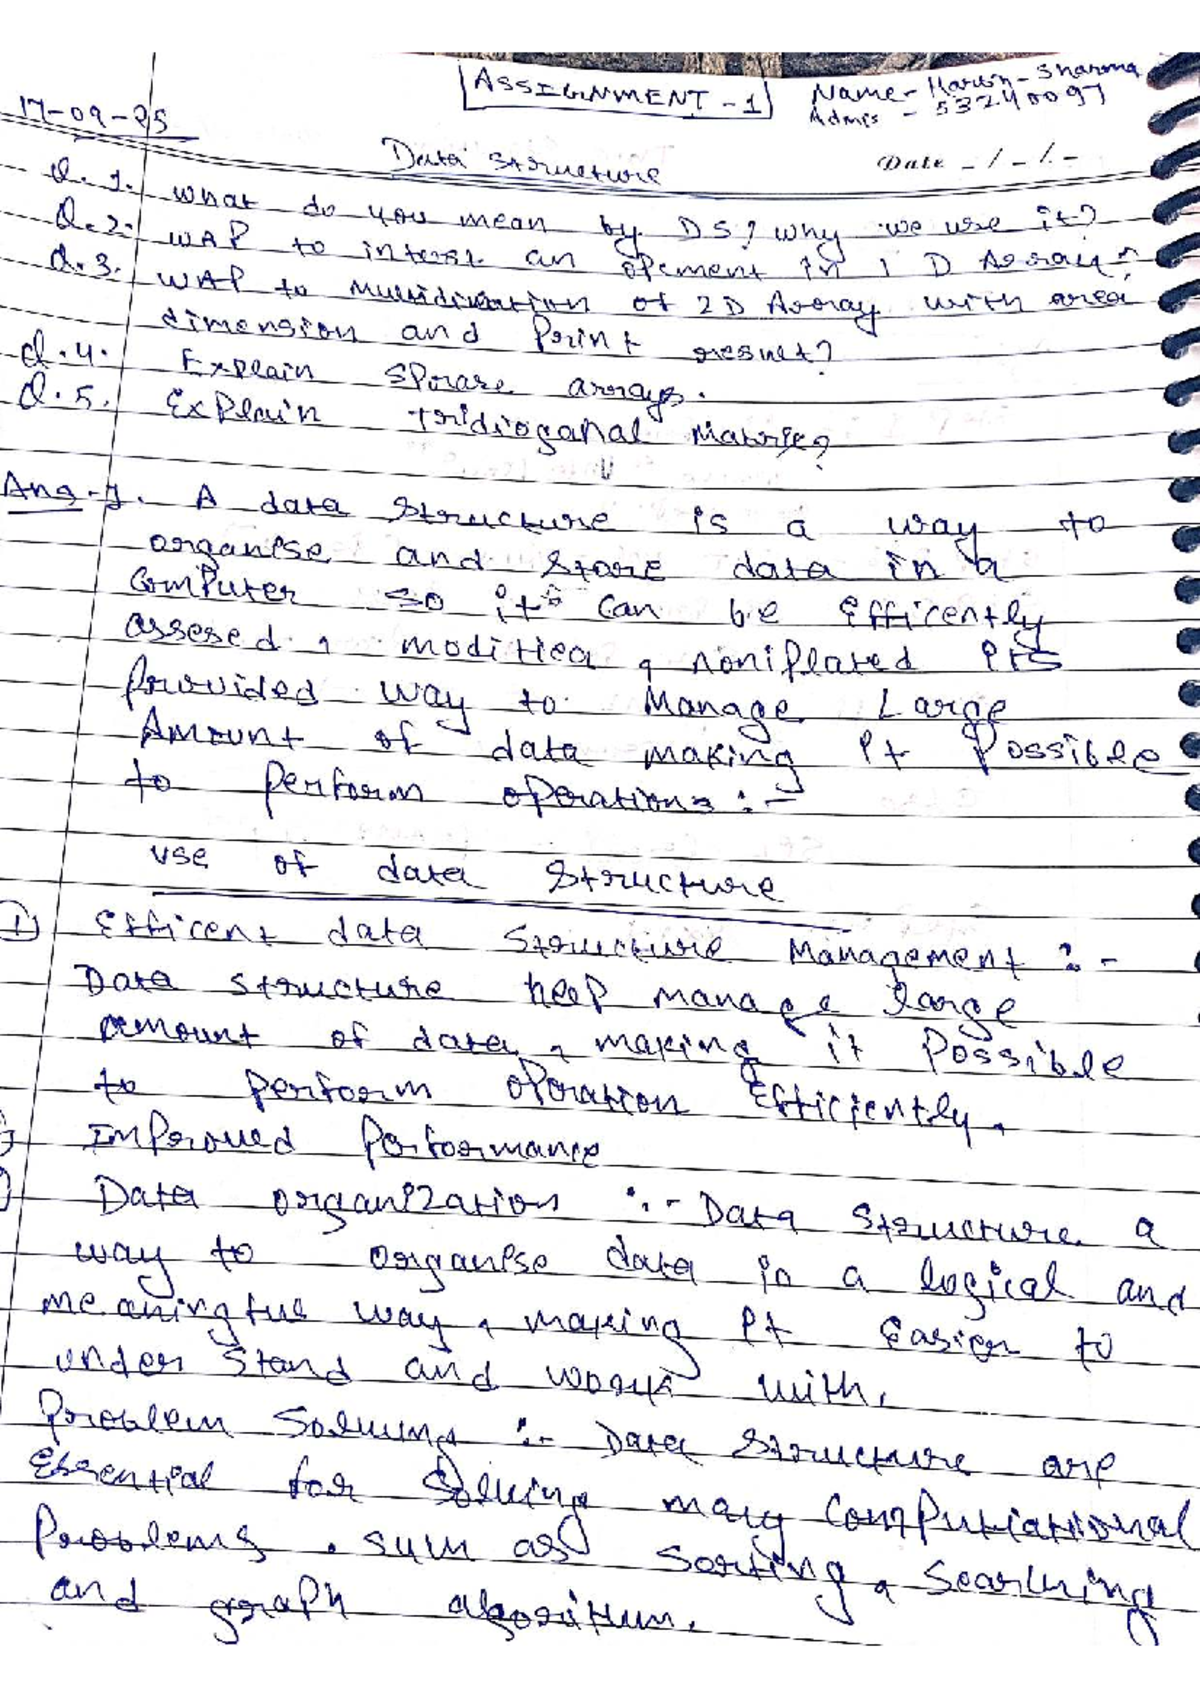 ASSIGNMENT - 1
Name - Sharma
Admis - 53240097
17-09-25
Data Structure
Date - / - / -
Q.1. What do you mean by DS? why we use it?
Q.2. WAP to insert an in 1 D Array?
Q.3. WAP to of 2D Array with
dimension and Print result?
Q.4. Explain arrays.
Q.5. Explain
Ans-1. A data structure is a way to
organise and store data in a
Computer so it can be Efficently
assesed, , Its
Provided way to Manage Large
Amount of data making It Possible
to perform operations :-
use of data structure
① Efficent data structure Management :-
Data structure help manage large
amount of data, making it Possible
to perform opration Efficiently.
Improved Performance
Data organization :- Data structure a
way to organise data in a logical and
meaningful way, making It Easier to
understand and work with.
Problem Solving :- Data Structure are
Essential for Solving many
Problems. as Sorting,
and graph